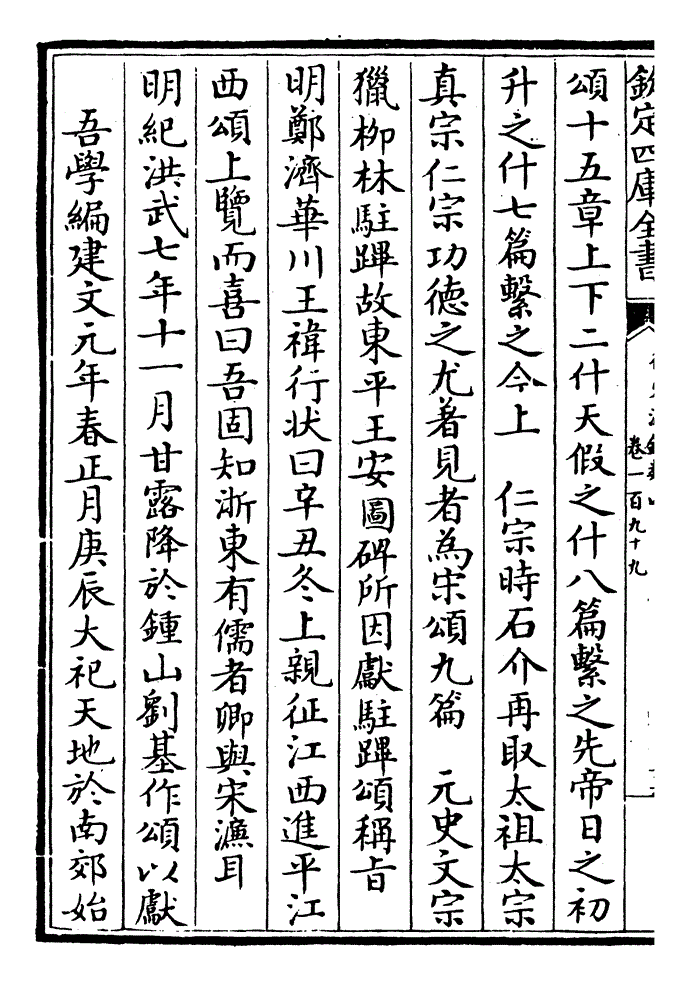 欽定四庫全書
卷一百九十九
頌十五章上下二什天假之什八篇繫之先帝日之初
升之什七篇繫之今上　仁宗時石介再取太祖太宗
真宗仁宗功德之尤著見者為宋頌九篇　元史文宗
獵栁林駐蹕故東平王安圖碑所因獻駐蹕頌稱旨
明鄭濟華川王禕行状曰辛丑冬上親征江西進平江
西頌上覽而喜曰吾固知浙東有儒者卿與宋濓耳
明紀洪武七年十一月甘露降於鍾山劉基作頌以獻
吾學編建文元年春正月庚辰大祀天地於南郊始